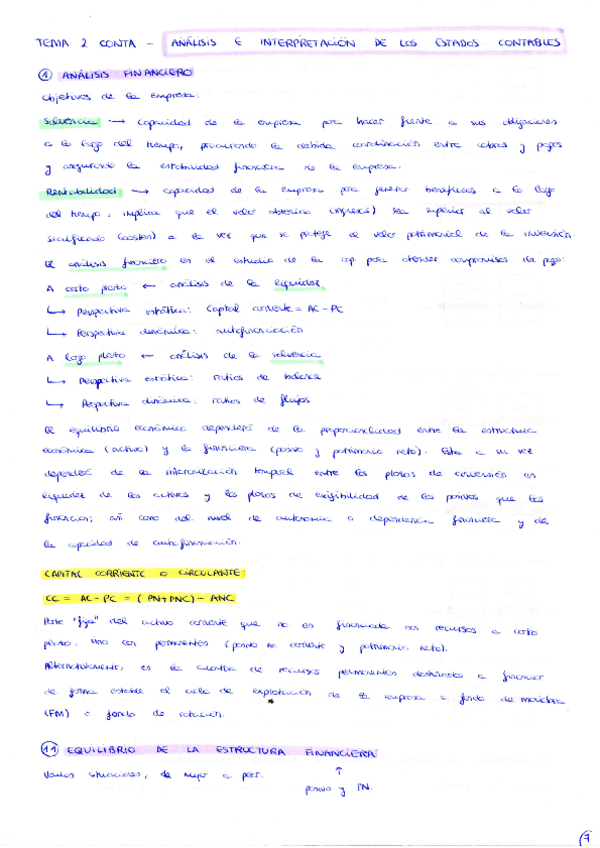 TEMA 2 CONTA - ANÁLISIS E INTERPRETACIÓN DE LOS ESTADOS CONTABLES
① ANÁLISIS FINANCIERO
Objetivos de la empresa:
Solvencia → capacidad de la empresa para hacer frente a sus obligaciones
a lo largo del tiempo, procurando la debida coordinación entre cobros y pagos
y asegurando la estabilidad financiera de la empresa.
Rentabilidad → capacidad de la empresa para generar beneficios a lo largo
del tiempo, implica que el valor obtenido (ingresos) sea superior al valor
sacrificado (costes) a la vez que se protege el valor patrimonial de la inversión.
El análisis financiero es el estudio de la cap. para atender compromisos de pago:
A corto plazo ← análisis de la liquidez
↳ Perspectiva estática: Capital corriente = AC - PC
↳ Perspectiva dinámica: autofinanciación
A largo plazo ← análisis de la solvencia
↳ Perspectiva estática: ratios de balance
↳ Perspectiva dinámica: ratios de flujos
El equilibrio económico dependerá de la proporcionalidad entre la estructura
económica (activo) y la financiera (pasivo y patrimonio neto). Esta a su vez
dependerá de la sincronización temporal entre los plazos de conversión en
liquidez de los activos y los plazos de exigibilidad de los pasivos que los
financian; así como del nivel de autonomía o dependencia financiera y de
la capacidad de autofinanciación.
CAPITAL CORRIENTE O CIRCULANTE:
CC = AC - PC = (PN + PNC) - ANC
Parte "fija" del activo corriente que no es financiada con recursos a corto
plazo, sino con permanentes (pasivo no corriente y patrimonio neto).
Alternativamente, es la cuantía de recursos permanentes destinados a financiar
de forma estable el ciclo de explotación de la empresa = fondo de maniobra
(FM) o fondo de rotación.
①.① EQUILIBRIO DE LA ESTRUCTURA FINANCIERA
Varias situaciones, de mejor a peor. ↑
pasivo y PN.
7